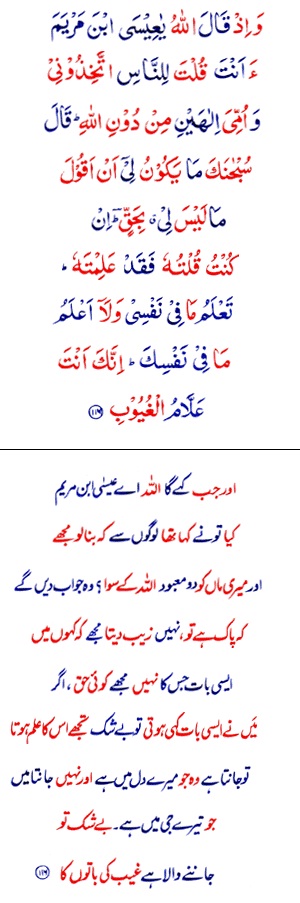 وَاِذْ قَالَ اللهُ يٰعِيْسَى ابْنَ مَرْيَمَ
ءَاَنْتَ قُلْتَ لِلنَّاسِ اتَّخِذُوْنِيْ
وَاُمِّيَ اِلٰهَيْنِ مِنْ دُوْنِ اللهِ ؕ قَالَ
سُبْحٰنَكَ مَا يَكُوْنُ لِيْۤ اَنْ اَقُوْلَ
مَا لَيْسَ لِيْ ۗ بِحَقٍّ ؕ اِنْ
كُنْتُ قُلْتُهٗ فَقَدْ عَلِمْتَهٗ ؕ
تَعْلَمُ مَا فِيْ نَفْسِيْ وَلَاۤ اَعْلَمُ
مَا فِيْ نَفْسِكَ ؕ اِنَّكَ اَنْتَ
عَلَّامُ الْغُيُوْبِ ﴿۱۱۶﴾
اور جب کہے گا اللہ اے عیسٰی ابن مریم
کیا تو نے کہا تھا لوگوں سے کہ بنا لو مجھے
اور میری ماں کو دو معبود اللہ کے سوا؟ وہ جواب دیں گے
کہ پاک ہے تو، نہیں زیب دیتا مجھے کہ کہوں میں
ایسی بات جس کا نہیں مجھے کوئی حق، اگر
میں نے ایسی بات کہی ہوتی تو بے شک تجھے اس کا علم ہوتا
تو جانتا ہے وہ جو میرے دل میں ہے اور نہیں جانتا میں
جو تیرے جی میں ہے۔ بے شک تو
جاننے والا ہے غیب کی باتوں کا ﴿۱۱۶﴾